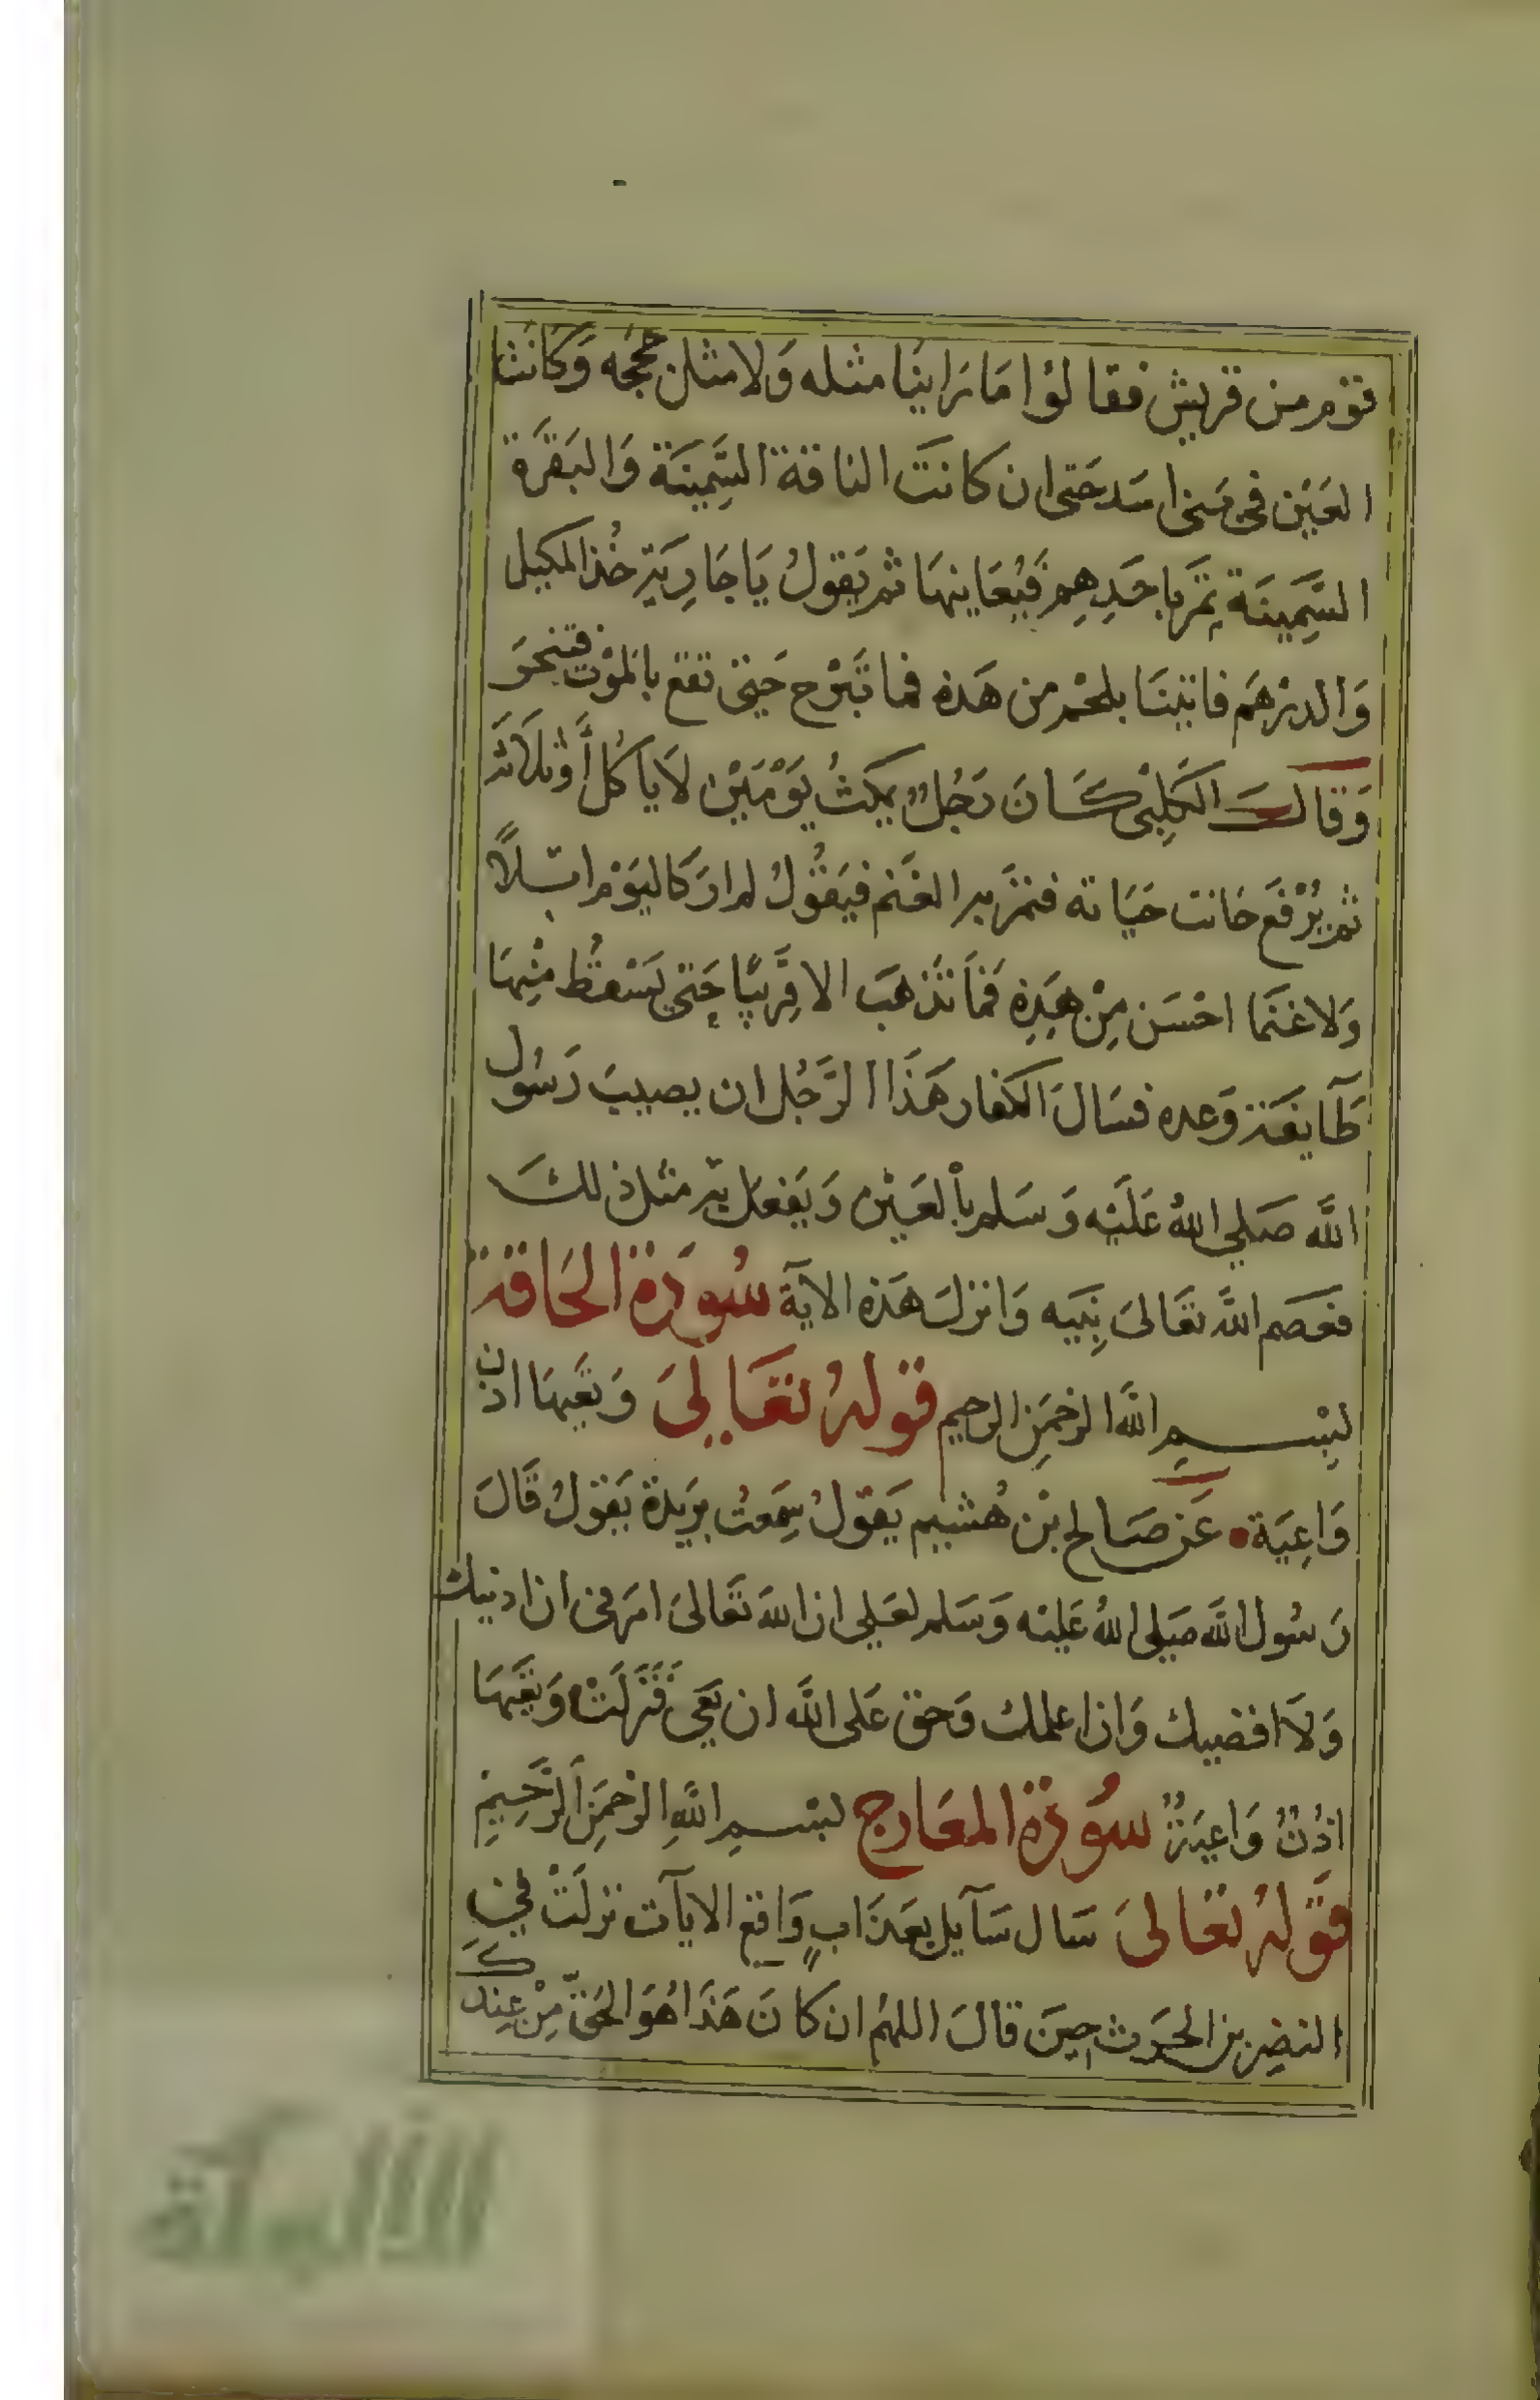 قوم من قريش فقالوا ما راينا مثله ولا مثل حججه وكانت
العين في بني اسد حتى ان كانت الناقة السمينة والبقرة
السمينة تمر باحدهم فيعاينها ثم يقول يا جارية خذ المكيل
والدرهم فاتينا بلحم من هذه فما تبرح حتى تقع بالموت فتنحر
وقال الكلبي كان رجل يمكث يومين لا ياكل أو ثلاثة
ثم يرفع جانب خباته فتمر به الغنم فيقول لم ار كاليوم ابلاً
ولا غنما احسن من هذه فما تذهب الا قريبًا حتى يسقط منها
طآيفة وعده فسال الكفار هذا الرجل ان يصيب رسول
الله صلي الله عليه وسلم بالعين ويفعل به مثل ذلك
فعصم الله تعالى نبيه وانزل هذه الآية سورة الحاقة
بسم الله الرحمن الرحيم قوله تعالى وتعيها اذن
واعية عن صالح بن هشيم يقول سمعت بريدة يقول قال
رسول الله صلي الله عليه وسلم لعلي ان الله تعالى امرني ان ادنيك
ولا اقصيك وان اعلمك وحق على الله ان تعي فنزلت وتعيها
اذن واعية سورة المعارج بسم الله الرحمن الرحيم
قوله تعالى سال سآيل بعذابٍ واقع الايآت نزلت في
النضر بن الحرث حين قال اللهم ان كان هذا هو الحق من عندك
الألوكة